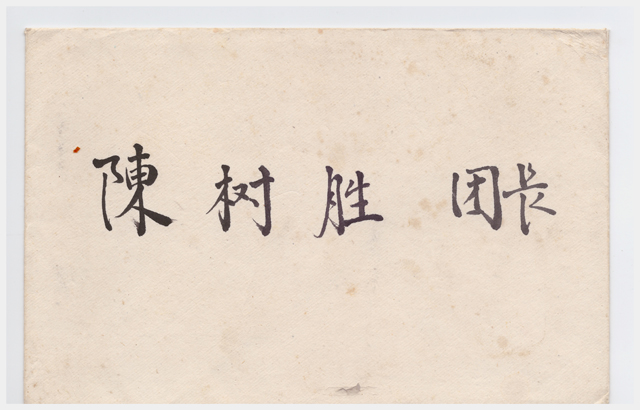 陳树胜 团长